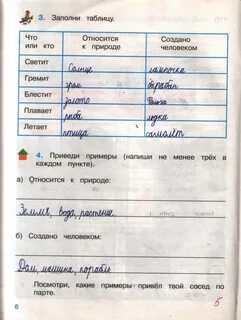 3. Заполни таблицу.
Что или кто Относится к природе Создано человеком
Светит Солнце лампочка
Гремит гром барабан
Блестит золото
Плавает рыба лодка
Летает птица самолёт
4. Приведи примеры (напиши не менее трёх в
каждом пункте).
а) Относится к природе:
Земля, вода, растение.
б) Создано человеком:
Дом, машина, корабль
Посмотри, какие примеры привёл твой сосед по
парте.
6 5